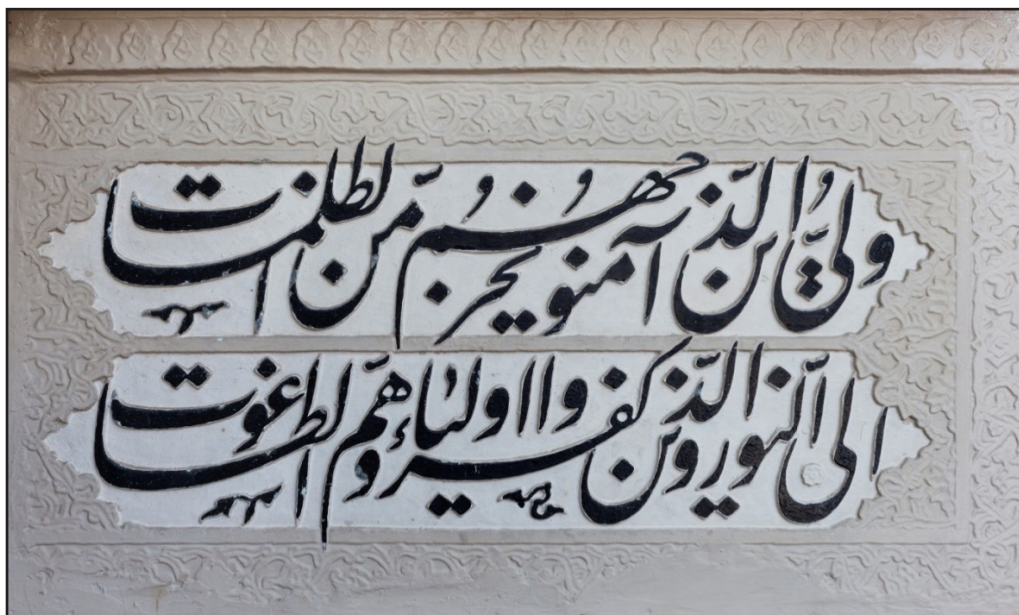 وليُّ الّذين آمنو يخرجهُم مّن الظلمات
الى النّور والّذين كفروا اولياؤهم الطاغوت